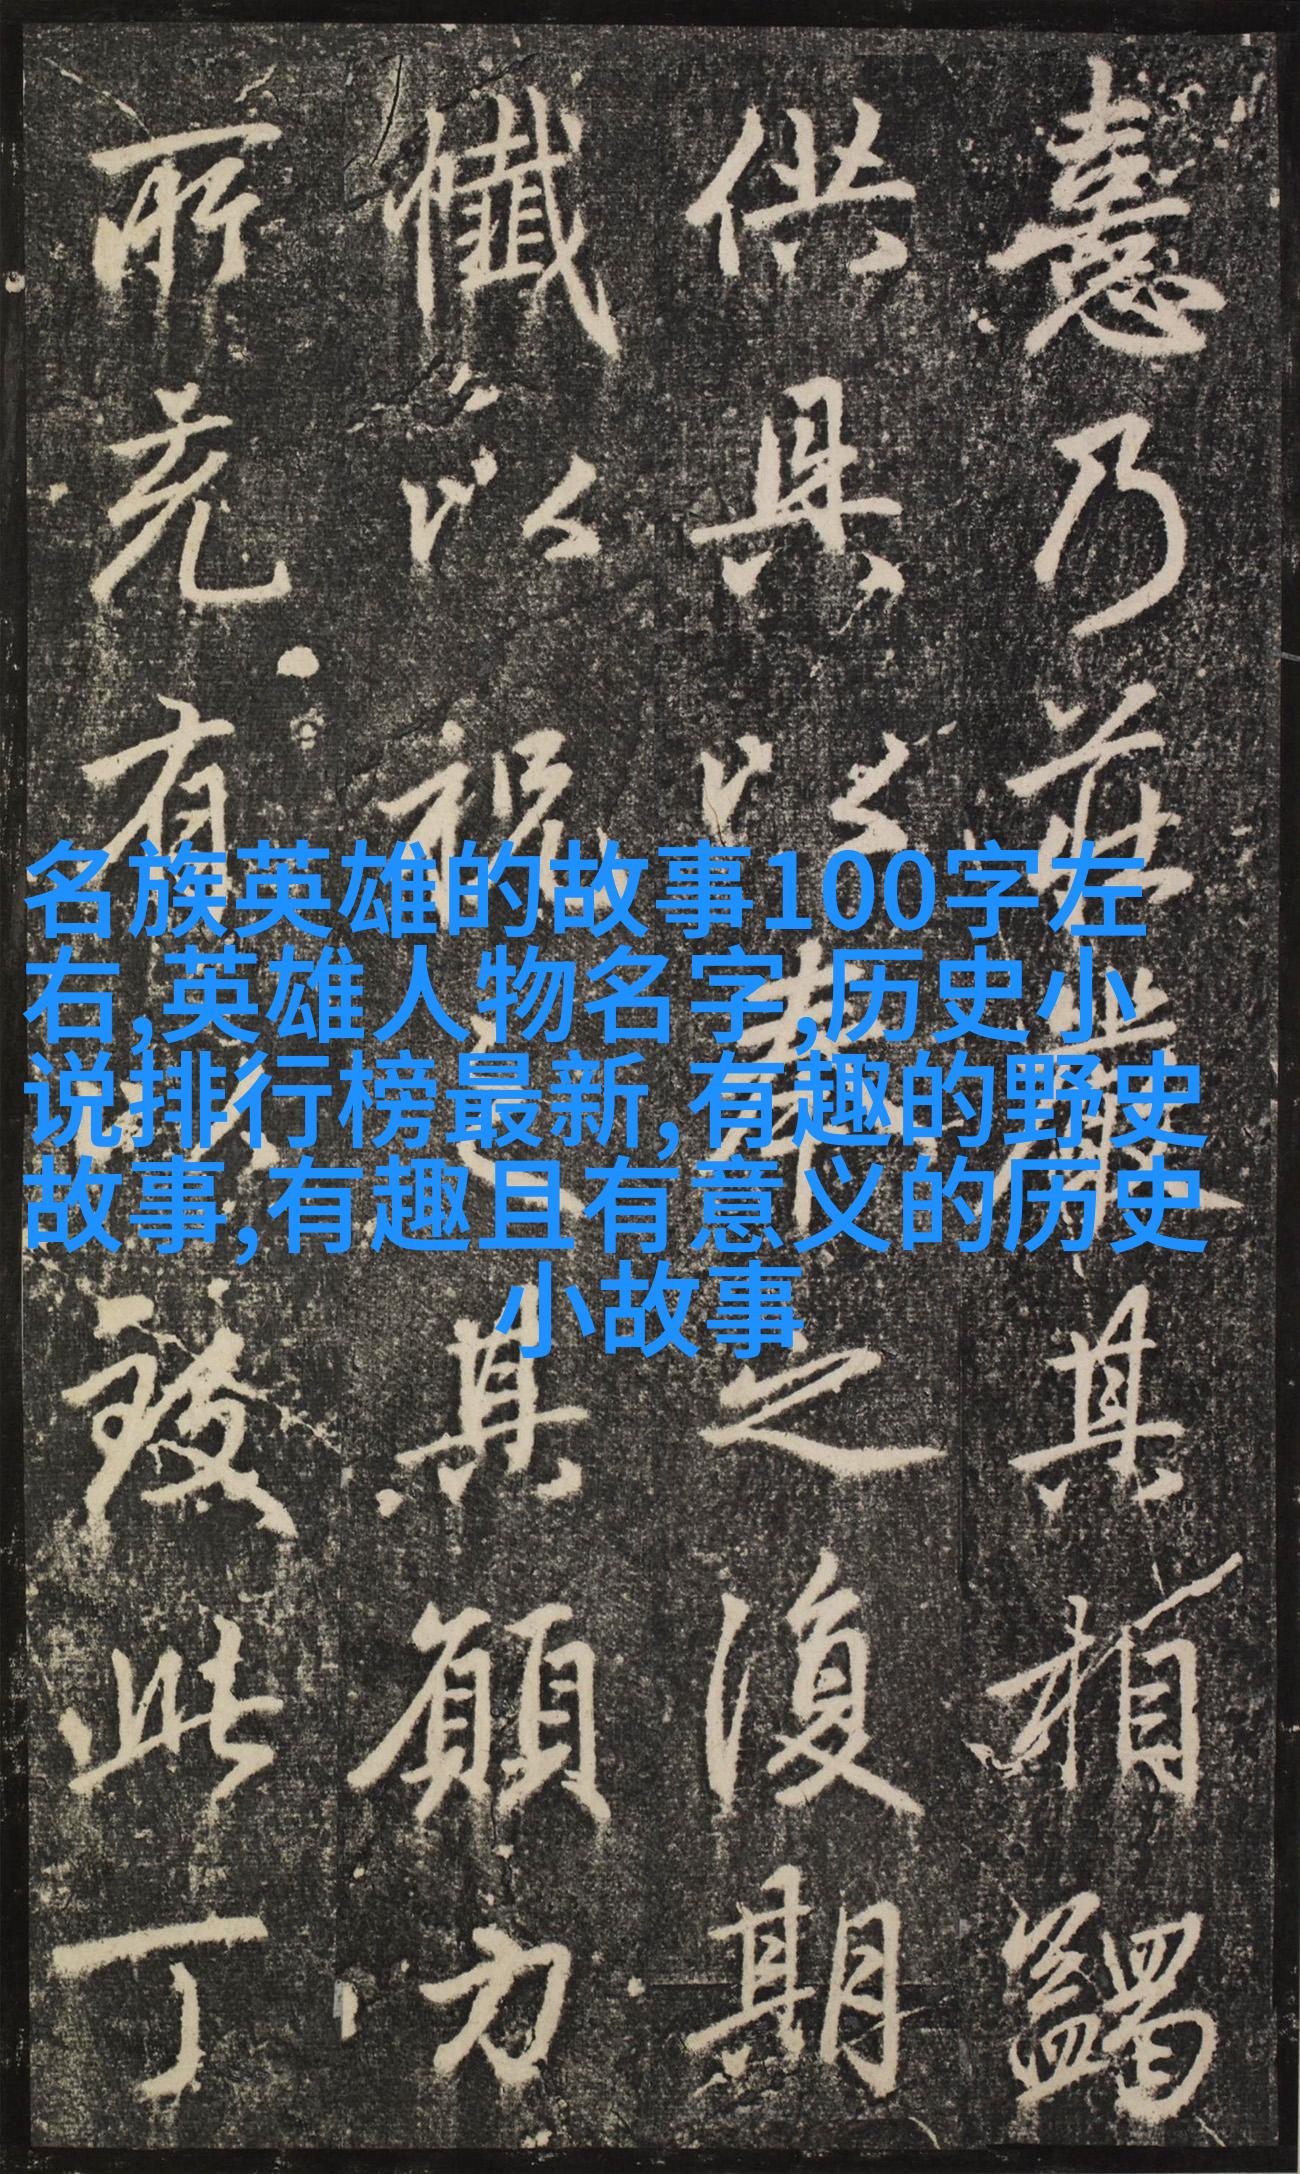 憙乃莊嚴其相蠲
供具以奉之復期
懺以祝之其願力
所羌有以致此丁
名族英雄的故事100字左
右,英雄人物名字,历史小
说排行榜最新,有趣的野史
故事,有趣且有意义的历史
小故事